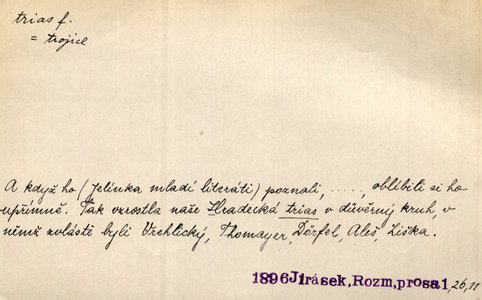 trias f.
= trojice
A když ho (Jelínka mladí literáti) poznali, ....., oblíbili si ho
upřímně. Tak vzrostla naše Hradecká trias v důvěrný kruh, v
němž zvláště byli Vrchlický, Thomayer, Dörfl, Aleš, Liška.
1896 Jirásek, Rozm, prosa 1, 26, 11